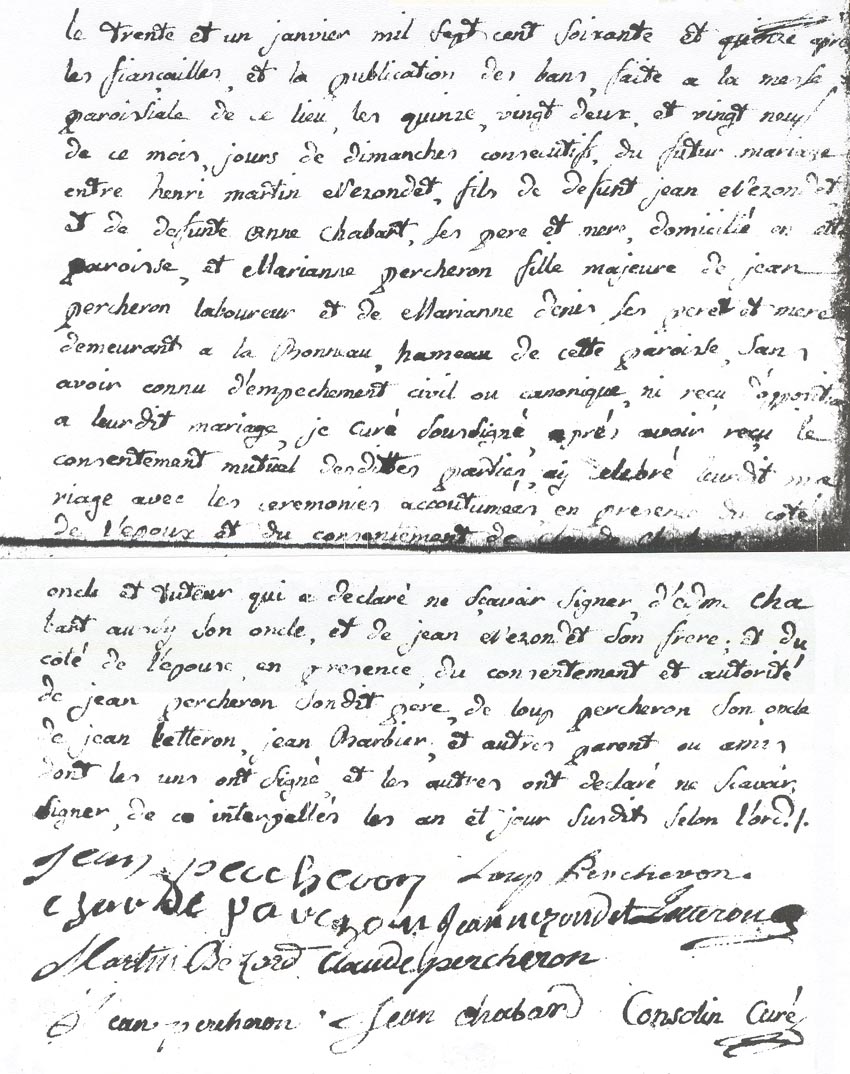 le trente et un janvier mil sept cent soixante et quinze apré
les fiançailles, et la publication des bans, faite a la messe
paroissiale de ce lieu, les quinze, vingt deux, et vingt neuf
de ce mois, jours de dimanches consecutifs, du futur mariage
entre henri martin Nezondet, fils de defunt jean Nezondet,
et de defunte Anne chabart, ses pere et mere, domicilié en
paroisse, et Marianne percheron fille majeure de jean
percheron laboureur et de Marianne denis ses peret et mere
demeurant a la Bonneau, hameau de cette paroisse, sans
avoir connu d'empechement civil ou canonique, ni reçu d'opposition
a leurdit mariage, je curé soussigné, après avoir reçu le
consentement mutuel desdittes parties, aÿ celebré leurdit ma
riage avec les ceremonies accoutumées, en presence du coté
de l'epoux et du consentement de
oncle et tuteur qui a declaré ne sçavoir signer, d'edme cha
bart aussy son oncle, et de jean Nezondet son frere; et du
côté de l'epouse, en presence, du consentement et autorité
de jean percheron sondit pere, de loup percheron son oncle
de jean Letteron, jean Barbier, et autres parent ou amis
dont les uns ont signé, et les autres ont declaré ne scavoir
signer, de ce interpellés les an et jour susdits selon l'ord./.
Jean percheron Loup Percheron
jean nezondet Letteron
Martin Bezard Claude percheron
Jean percheron Jean chabard Consolin Curé